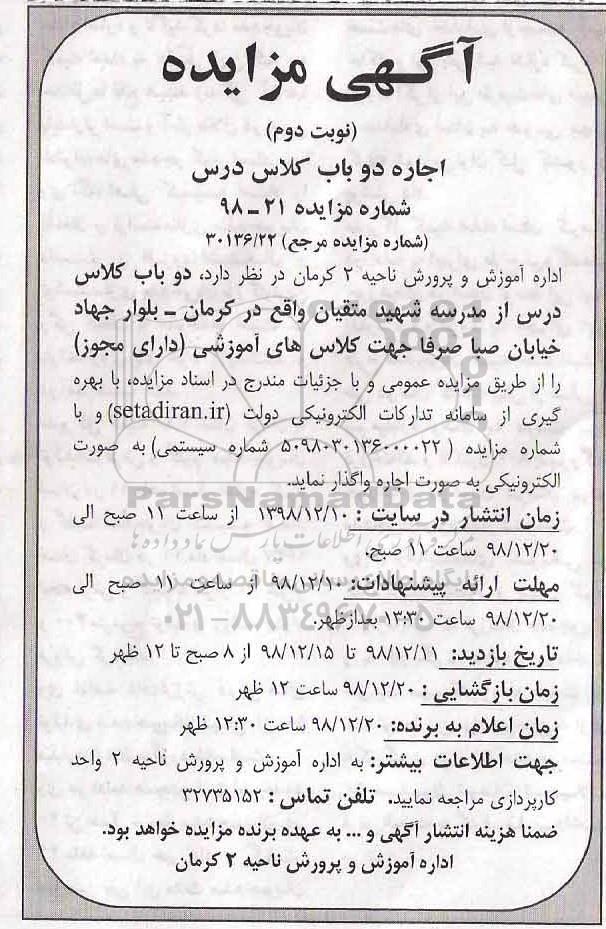 آگهی مزایده
(نوبت دوم)
اجاره دو باب کلاس درس
شماره مزایده ۲۱ ـ ۹۸
(شماره مزایده مرجع) ۳۰۱۳۶/۲۲
اداره آموزش و پرورش ناحیه ۲ کرمان در نظر دارد، دو باب کلاس
درس از مدرسه شهید متقیان واقع در کرمان ـ بلوار جهاد
خیابان صبا صرفا جهت کلاس های آموزشی (دارای مجوز)
را از طریق مزایده عمومی و با جزئیات مندرج در اسناد مزایده، با بهره
گیری از سامانه تدارکات الکترونیکی دولت (setadiran.ir) و با
شماره مزایده ( ۵۰۹۸۰۳۰۱۳۶۰۰۰۰۲۲ شماره سیستمی) به صورت
الکترونیکی به صورت اجاره واگذار نماید.
ParsNamadData
زمان انتشار در سایت : ۱۳۹۸/۱۲/۱۰ از ساعت ۱۱ صبح الی
۹۸/۱۲/۲۰ ساعت ۱۱ صبح.
مهلت ارائه پیشنهادات: ۹۸/۱۲/۱۰ از ساعت ۱۱ صبح الی
۹۸/۱۲/۲۰ ساعت ۱۳:۳۰ بعدازظهر.
تاریخ بازدید: ۹۸/۱۲/۱۱ تا ۹۸/۱۲/۱۵ از ۸ صبح تا ۱۲ ظهر
زمان بازگشایی : ۹۸/۱۲/۲۰ ساعت ۱۲ ظهر
زمان اعلام به برنده: ۹۸/۱۲/۲۰ ساعت ۱۲:۳۰ ظهر
جهت اطلاعات بیشتر: به اداره آموزش و پرورش ناحیه ۲ واحد
کارپردازی مراجعه نمایید. تلفن تماس : ۳۲۷۳۵۱۵۲
ضمنا هزینه انتشار آگهی و ... به عهده برنده مزایده خواهد بود.
اداره آموزش و پرورش ناحیه ۲ کرمان